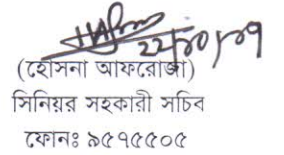 ২২/১০/০৭
(হোসনা আফরোজা)
সিনিয়র সহকারী সচিব
ফোনঃ ৯৫৭৫৫০৫